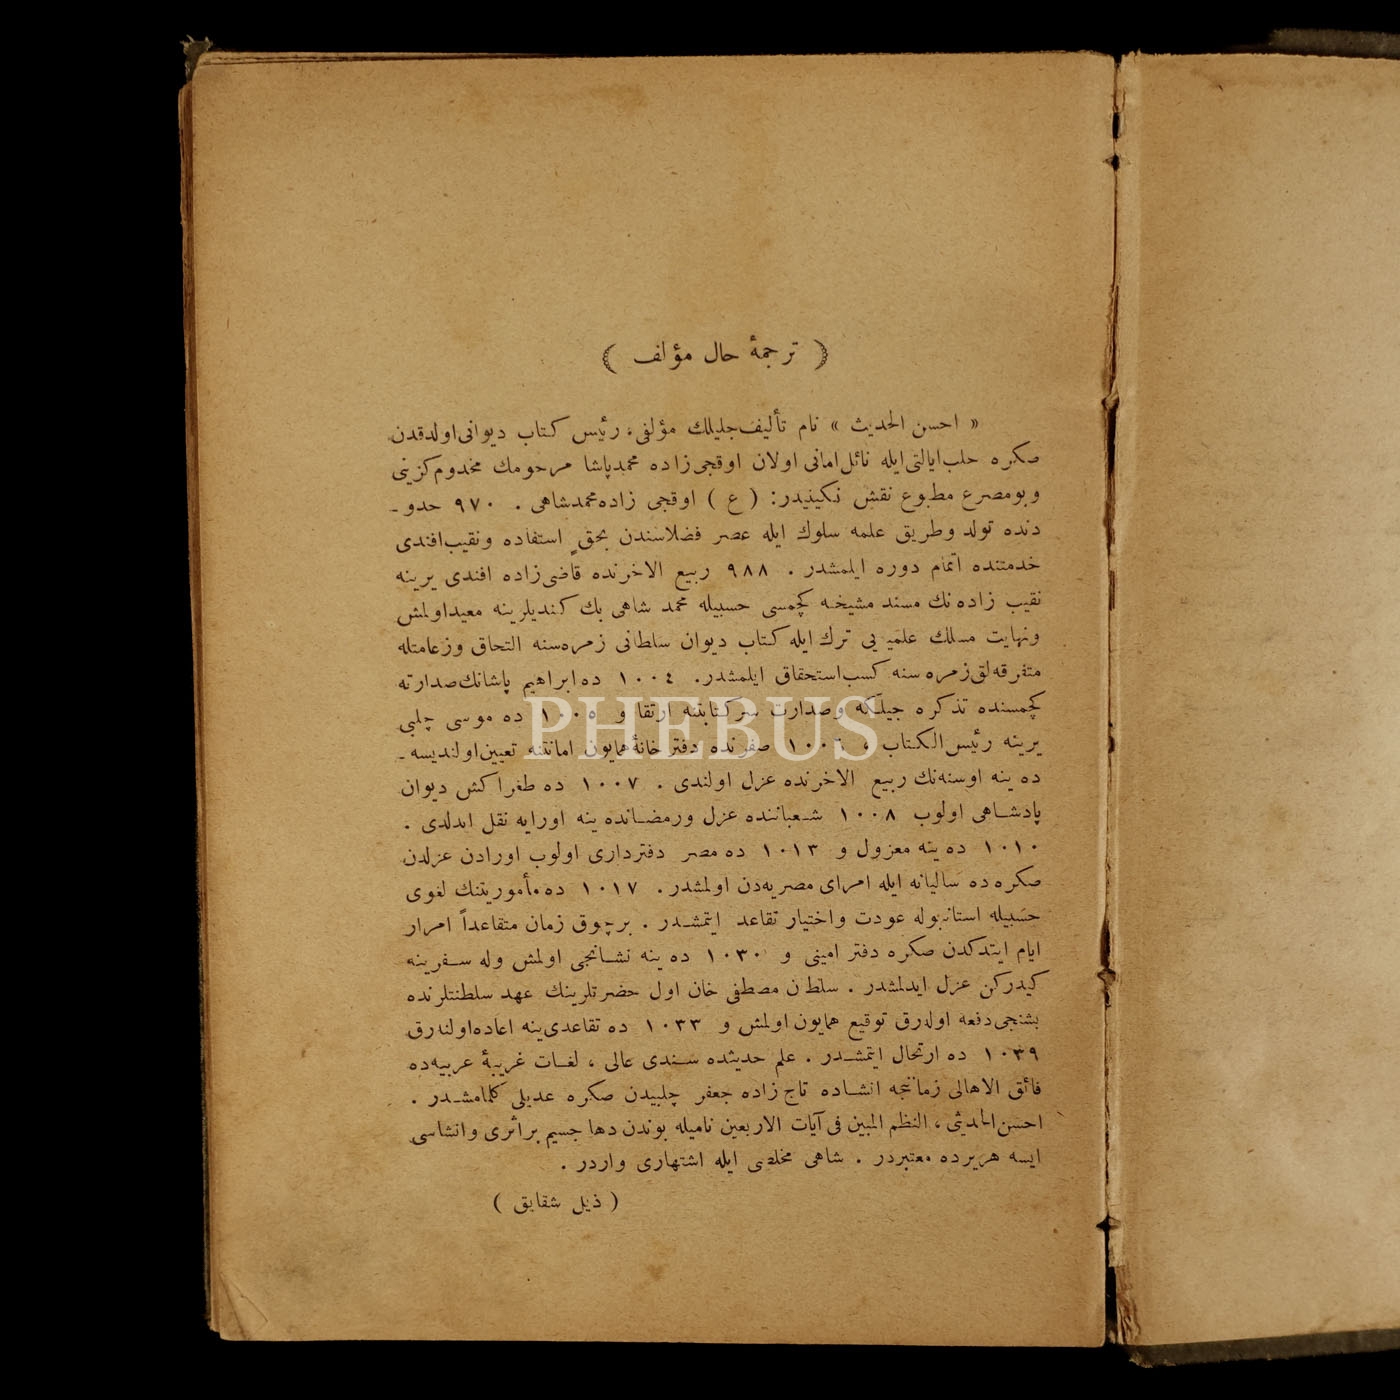 ( ترجمهٔ حال مؤلف )
« احسن الحدیث » نام تألیف جلیلك مؤلفی، رئیس کتاب دیوانی اولدقدن
صکره حلب ایالتی ایله نائل امانی اولان اوقجی زاده محمد پاشا مرحومك مخدوم کزینی
وبومصرع مطبوع نقش نکینیدر: ( ع ) اوقجی زاده محمد شاهی . ٩٧٠ حدو ـ
دنده تولد وطریق علمه سلوك ایله عصر فضلاسندن بحقٍ استفاده ونقیب افندی
خدمتنده اتمام دوره ایلمشدر . ٩٨٨ ربیع الاخرنده قاضی زاده افندی یرینه
نقیب زاده نك مسند مشیخته کچمسی حسبیله محمد شاهی بك کندیلرینه معید اولمش
ونهایت مسلك علمیه یی ترك ایله کتاب دیوان سلطانی زمره سنه التحاق وزعامتله
متفرقه لق زمره سنه کسب استحقاق ایلمشدر. ١٠٠٤ ده ابراهیم پاشانك صدارته
کچمسنده تذکره جیلکه وصدارت سرکتابتنه ارتقا و ١٠٠٥ ده موسی چلبی
یرینه رئیس الکتاب ، ١٠٠٦ صفرنده دفتر خانهٔ همایون امانتنه تعیین اولندیسه ـ
ده ینه اوسنه نك ربیع الاخرنده عزل اولندی . ١٠٠٧ ده طغرا کش دیوان
پادشاهی اولوب ١٠٠٨ شعباننده عزل ورمضانده ینه اورایه نقل ایدلدی .
١٠١٠ ده ینه معزول و ١٠١٣ ده مصر دفترداری اولوب اورادن عزلدن
صکره ده سالیانه ایله امرای مصریه دن اولمشدر. ١٠١٧ ده مأموریتنك لغوی
حسبیله استانبوله عودت واختیار تقاعد ایتمشدر . برچوق زمان متقاعداً امرار
ایام ایتدکدن صکره دفتر امینی و ١٠٣٠ ده ینه نشانجی اولمش وله سفرینه
کیدرکن عزل ایدلمشدر . سلطان مصطفی خان اول حضرتلرینك عهد سلطنتلرنده
بشنجی دفعه اوله رق توقیع همایون اولمش و ١٠٣٣ ده تقاعدی ینه اعاده اولنه رق
١٠٣٩ ده ارتحال ایتمشدر . علم حدیثده سندی عالی ، لغات غریبهٔ عربیه ده
فائق الاهالی زماننجه انشاده تاج زاده جعفر چلبیدن صکره عدیلی کلمامشدر .
احسن الحدیثی ، النظم المبین فی آیات الاربعین نامیله بوندن دها جسیم بر اثری وانشاسی
ایسه هریرده معتبردر . شاهی مخلصی ایله اشتهاری واردر .
( ذیل شقایق )
PHEBUS